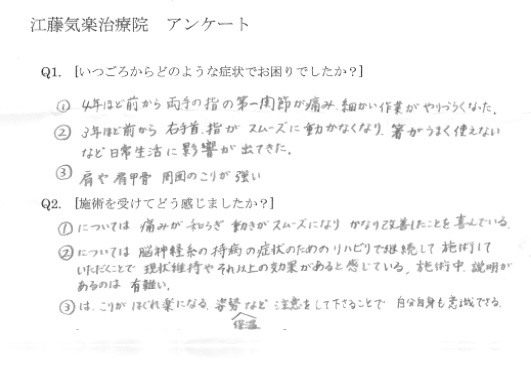 江藤気楽治療院 アンケート
Q1. [いつごろからどのような症状でお困りでしたか?]
① 4年ほど前から 両手の指の第一関節が痛み、細かい作業がやりづらくなった。
② 3年ほど前から 右手首、指が スムーズに動かなくなり、箸がうまく使えない
など日常生活に影響が出てきた。
③ 肩や肩甲骨 周囲のこりが強い
Q2. [施術を受けてどう感じましたか?]
①については 痛みが和らぎ 動きがスムーズになり かなり改善したことを喜んでいる。
②については 脳神経系の持病の症状のためのリハビリで継続して施術して
いただくことで 現状維持やそれ以上の効果があると感じている。施術中、説明が
あるのは 有難い。
③は、こりがほぐれ楽になる。姿勢など 注意をして下さることで 自分自身も意識できる。
保温